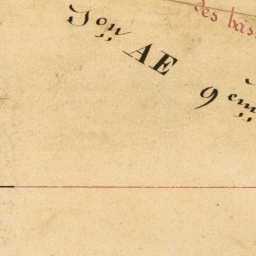 des bas
Son AE 9 em